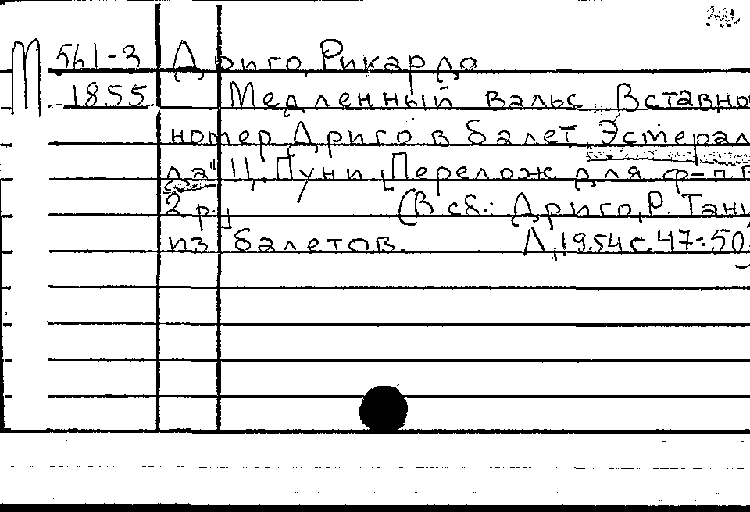 М 561-3 Дриго, Рикардо
1855 Медленный вальс. Вставно
номер Дриго в балет Эсмерал
да" Ц. Пуни [Перелож для ф-п в
2 р.] (В сб.: Дриго, Р. Танц
из балетов. Л, 1954 с. 47-50